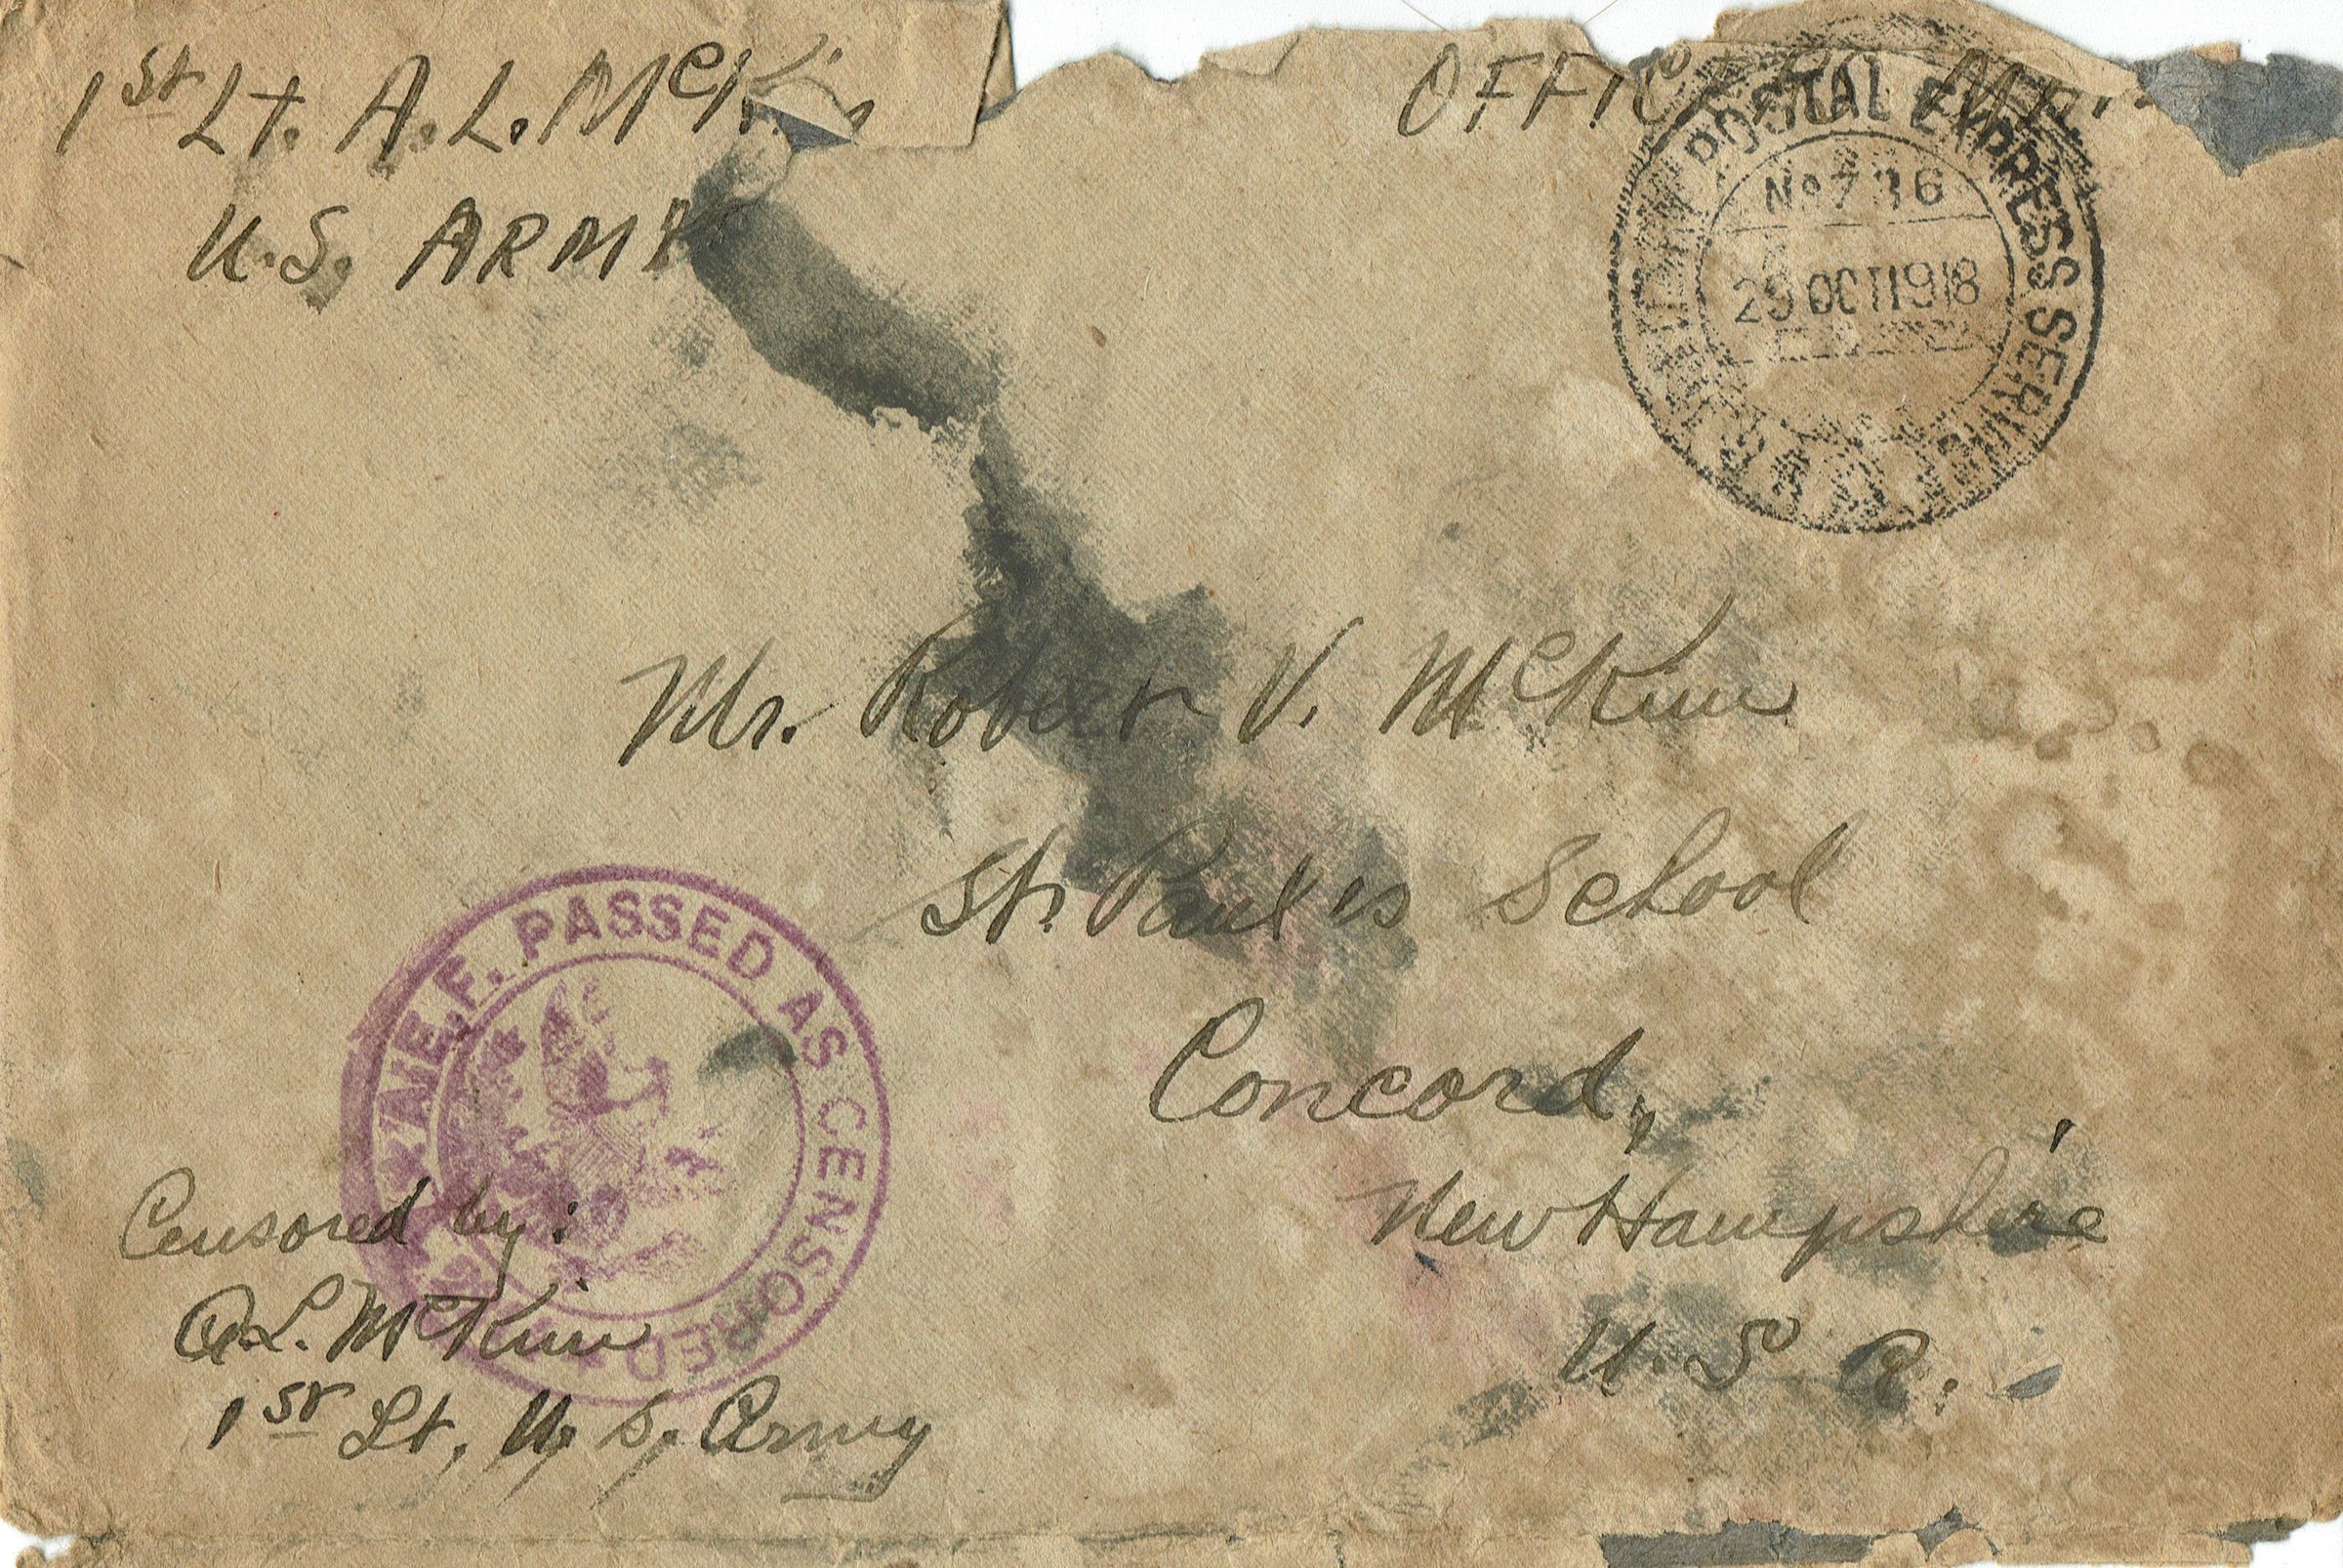 1st Lt. A.L. McK
U.S. ARMY
OFFICER'S MAIL
MILITARY POSTAL EXPRESS SERVICE
No 736
29 OCT 1918
Mr. Robert V. McKim
St. Paul's School
Concord,
New Hampshire
U.S.A.
A.E.F. PASSED AS CENSORED
Censored by:
A.L. McKim
1st Lt, U.S. Army